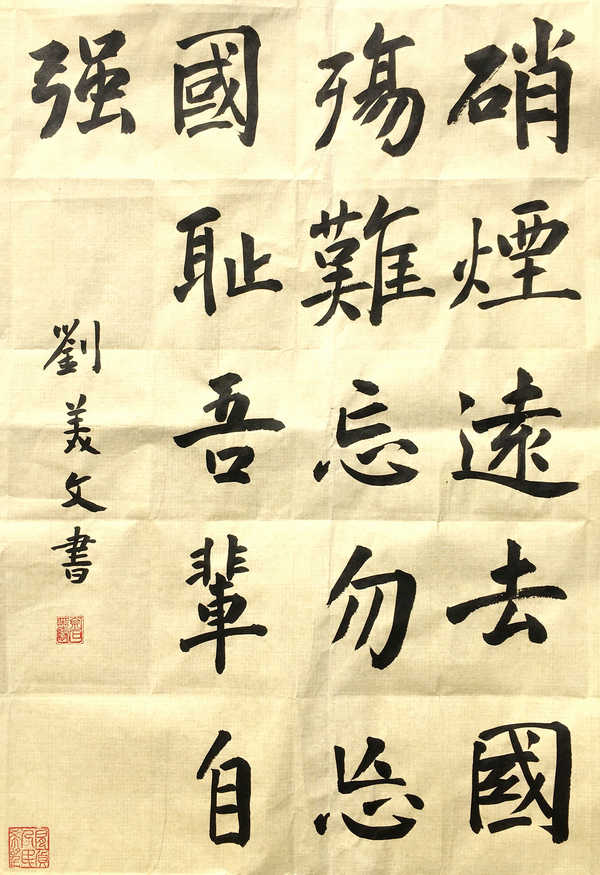 硝煙遠去國
殤難忘勿忘
國耻吾輩自
强
劉美文書